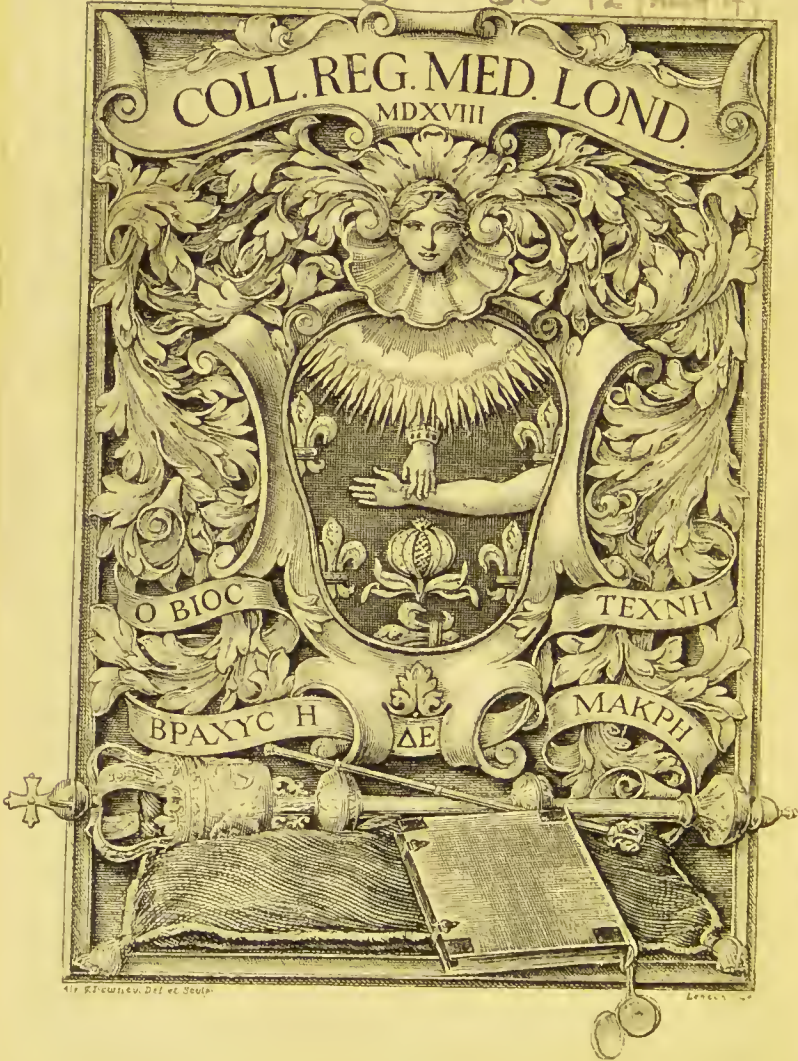 COLL. REG. MED. LOND.
MDXVIII
Ο ΒΙΟC
ΤΕΧΝΗ
ΒΡΑΧΥC Η
ΔΕ
ΜΑΚΡΗ
Del et Sculp.